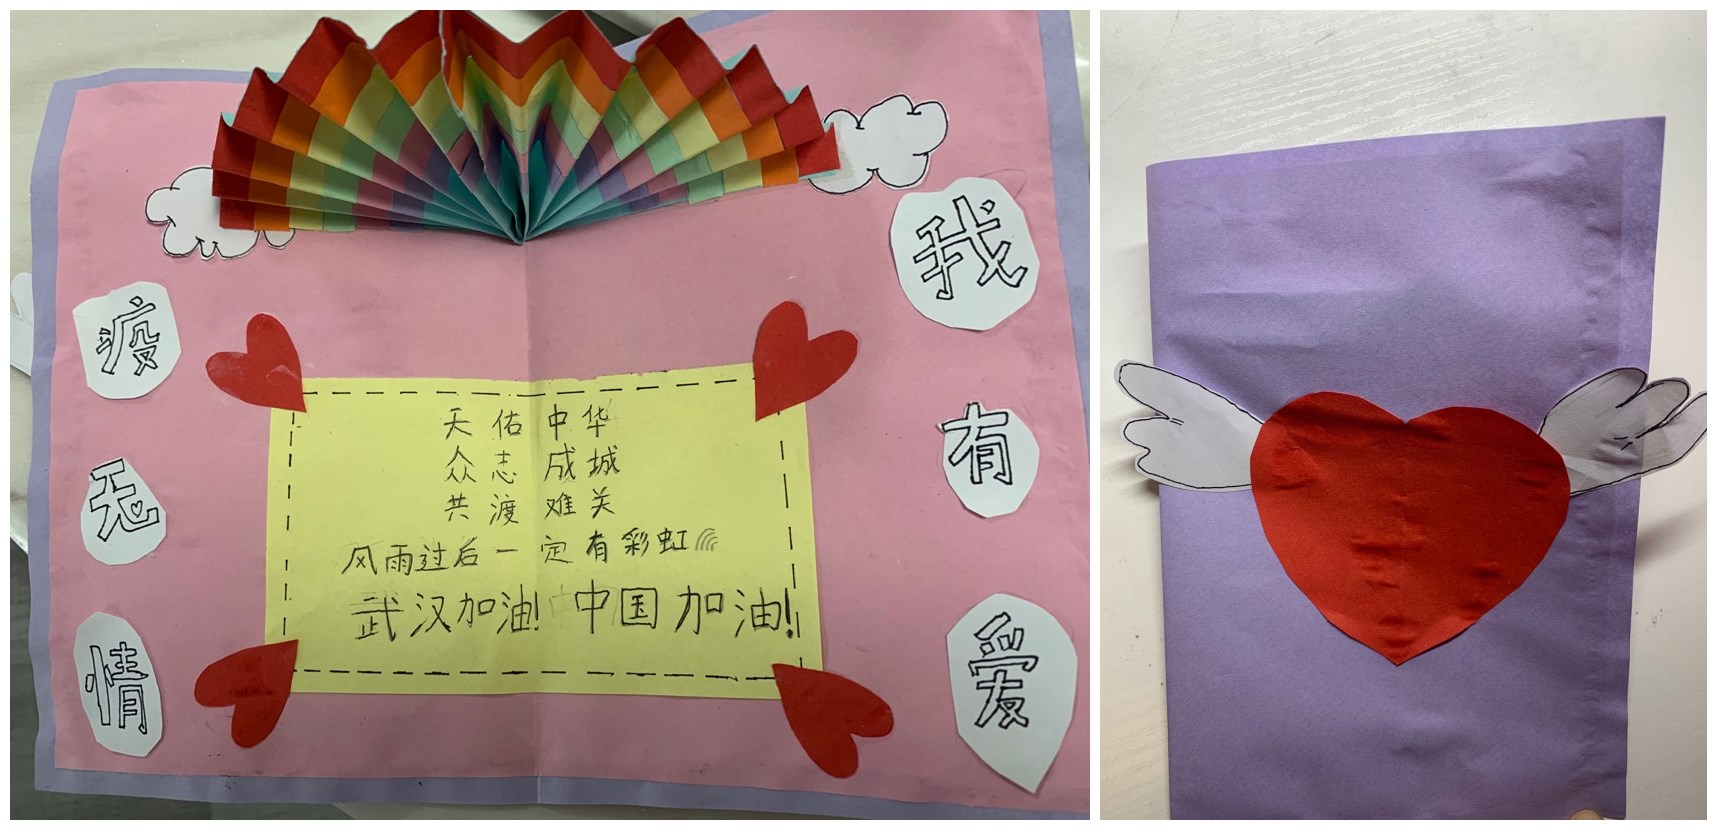 疫无情
我有爱
天佑中华
众志成城
共渡难关
风雨过后一定有彩虹
武汉加油!中国加油!